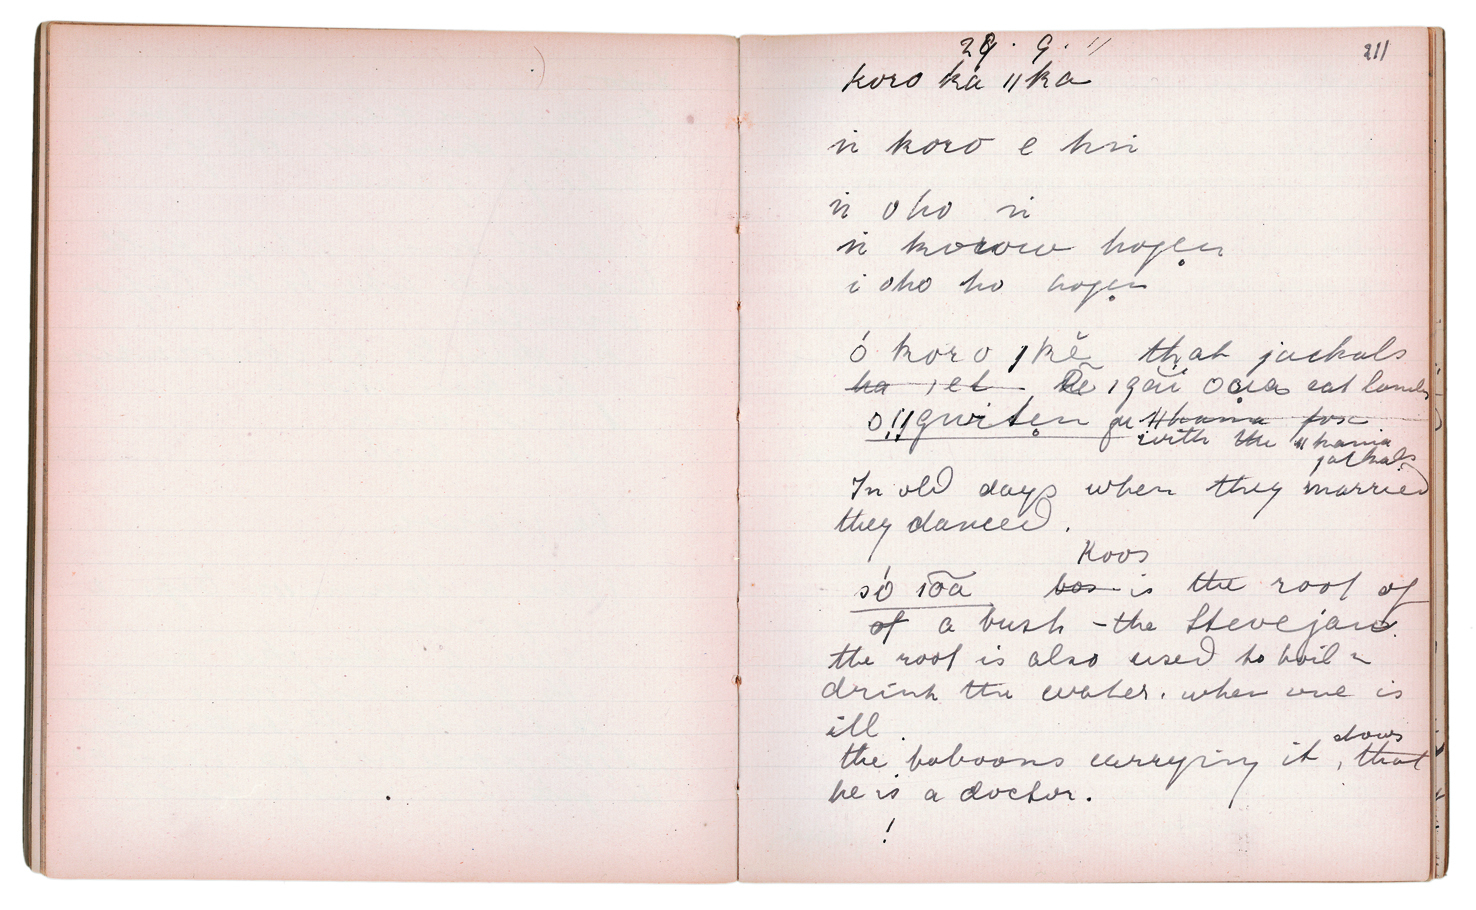 29. 9. 11
211
koro ka ǁka
ṅ koro e hṅ
ṅ oho ṅ
ṅ korow hogen
i oho ho hogen
ó koro ǀkě that jackals
ha ǀet ǀgai oa̰a eat lambs
o!ǁgwiten ǁkania fox
with the ǁkania
jackals
In old days when they married
they danced.
Koos
só ǀõa bos is the root of
of a bush – the Stevejans.
the root is also used to boil
drink the water. when one is
ill.
the baboons carrying it, shows that
he is a doctor.
!